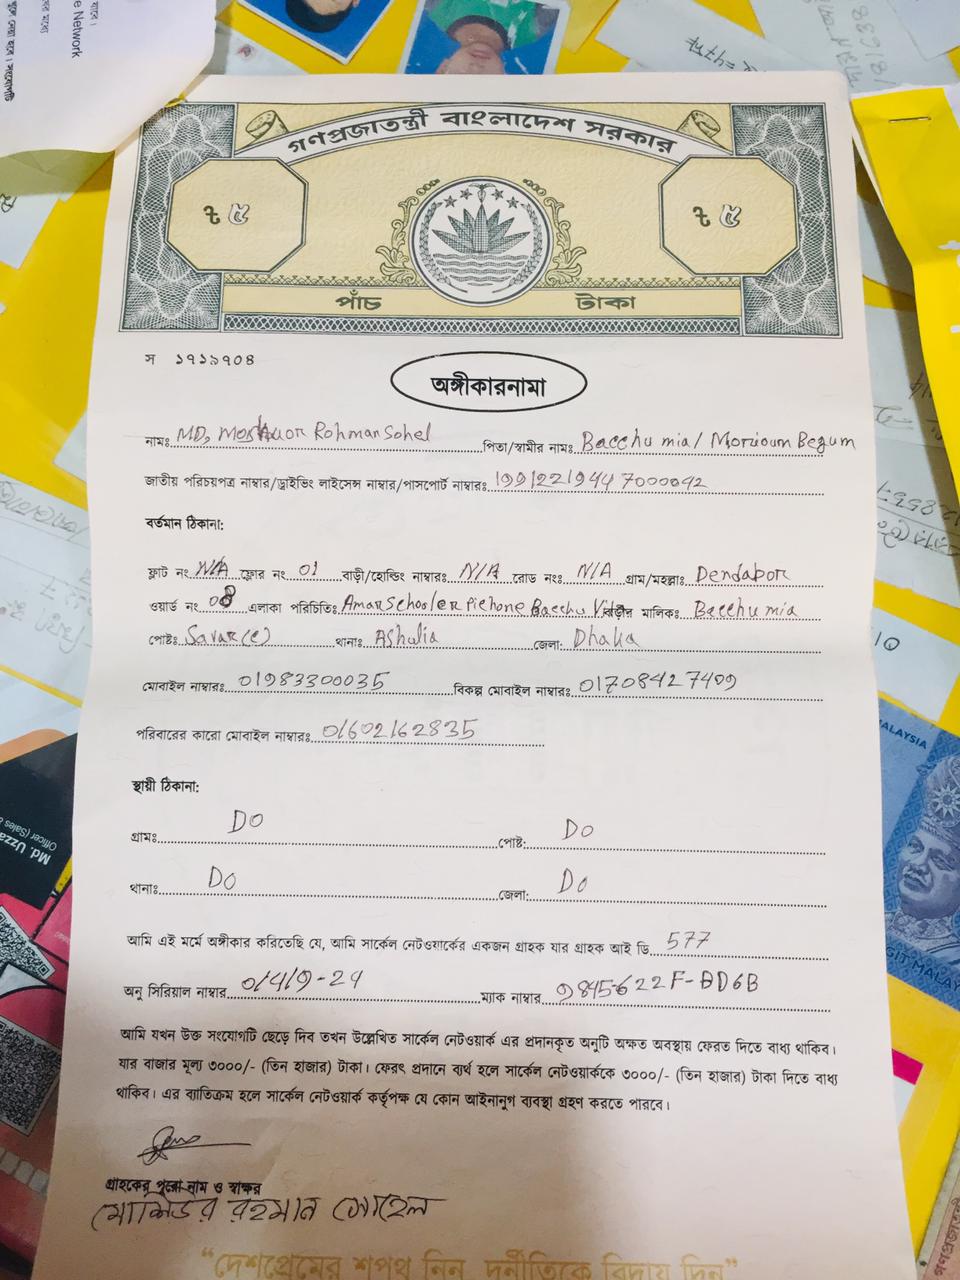 গণপ্রজাতন্ত্রী বাংলাদেশ সরকার
৳ ৫ ৳ ৫
পাঁচ টাকা
স ১৭১৯৭০৪
অঙ্গীকারনামা
নামঃ MD, Rohman Sohel পিতা/স্বামীর নামঃ Bacchu mia/ Morioum Begum
জাতীয় পরিচয়পত্র নাম্বার/ড্রাইভিং লাইসেন্স নাম্বার/পাসপোর্ট নাম্বারঃ 19912219447000042
বর্তমান ঠিকানা:
ফ্লাট নং N/A ফ্লোর নং 01 বাড়ী/হোল্ডিং নাম্বারঃ N/A রোড নংঃ N/A গ্রাম/মহল্লাঃ Dendabor
ওয়ার্ড নং 08 এলাকা পরিচিতিঃ Amar Schooler Pichone Bacchu মালিকঃ Bacchu mia
পোষ্টঃ Savar(c) থানাঃ Ashulia জেলা: Dhaka
মোবাইল নাম্বারঃ 01983300035 বিকল্প মোবাইল নাম্বারঃ 01708427409
পরিবারের কারো মোবাইল নাম্বারঃ 01602162835
স্থায়ী ঠিকানা:
গ্রামঃ DO পোষ্ট: DO
থানাঃ DO জেলা: DO
আমি এই মর্মে অঙ্গীকার করিতেছি যে, আমি সার্কেল নেটওয়ার্কের একজন গ্রাহক যার গ্রাহক আই ডি 577
অনু সিরিয়াল নাম্বার 01419-24 ম্যাক নাম্বার
আমি যখন উক্ত সংযোগটি ছেড়ে দিব তখন উল্লেখিত সার্কেল নেটওয়ার্ক এর প্রদানকৃত অনুটি অক্ষত অবস্থায় ফেরত দিতে বাধ্য থাকিব।
যার বাজার মূল্য ৩০০০/- (তিন হাজার) টাকা। ফেরৎ প্রদানে ব্যর্থ হলে সার্কেল নেটওয়ার্ককে ৩০০০/- (তিন হাজার) টাকা দিতে বাধ্য
থাকিব। এর ব্যাতিক্রম হলে সার্কেল নেটওয়ার্ক কর্তৃপক্ষ যে কোন আইনানুগ ব্যবস্থা গ্রহণ করতে পারবে।
গ্রাহকের পুরো নাম ও স্বাক্ষর
রহমান সোহেল
"দেশপ্রেমের শপথ নিন, দুর্নীতিকে বিদায় দিন"
e Network
Md. Uzza
Officer (Sales
MALAYSIA